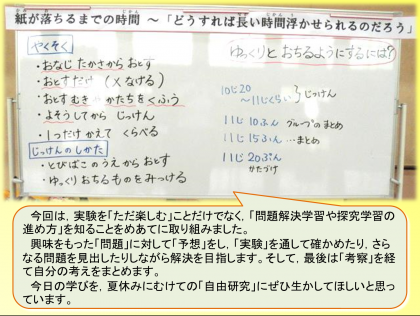 紙が落ちるまでの時間 ～「どうすれば長い時間浮かせられるのだろう」
やくそく
・おなじ たかさから おとす
・おとすだけ (✕なげる)
・おとす むき、かたちを くふう
・よそうしてから じっけん
・1つだけ かえて くらべる
じっけんのしかた
・とびばこの うえ から おとす
・ゆっくり おちるものを みっける
ゆっくりと おちるようにするには?
10じ20
～11じくらい じっけん
11じ10ぷん グループのまとめ
11じ15ふん …まとめ
11じ20ぷん
かたづけ
今回は，実験を「ただ楽しむ」ことだけでなく，「問題解決学習や探究学習の
進め方」を知ることをめあてに取り組みました。
興味をもった「問題」に対して「予想」をし，「実験」を通して確かめたり，さら
なる問題を見出したりしながら解決を目指します。そして，最後は「考察」を経
て自分の考えをまとめます。
今日の学びを，夏休みにむけての「自由研究」にぜひ生かしてほしいと思っ
ています。